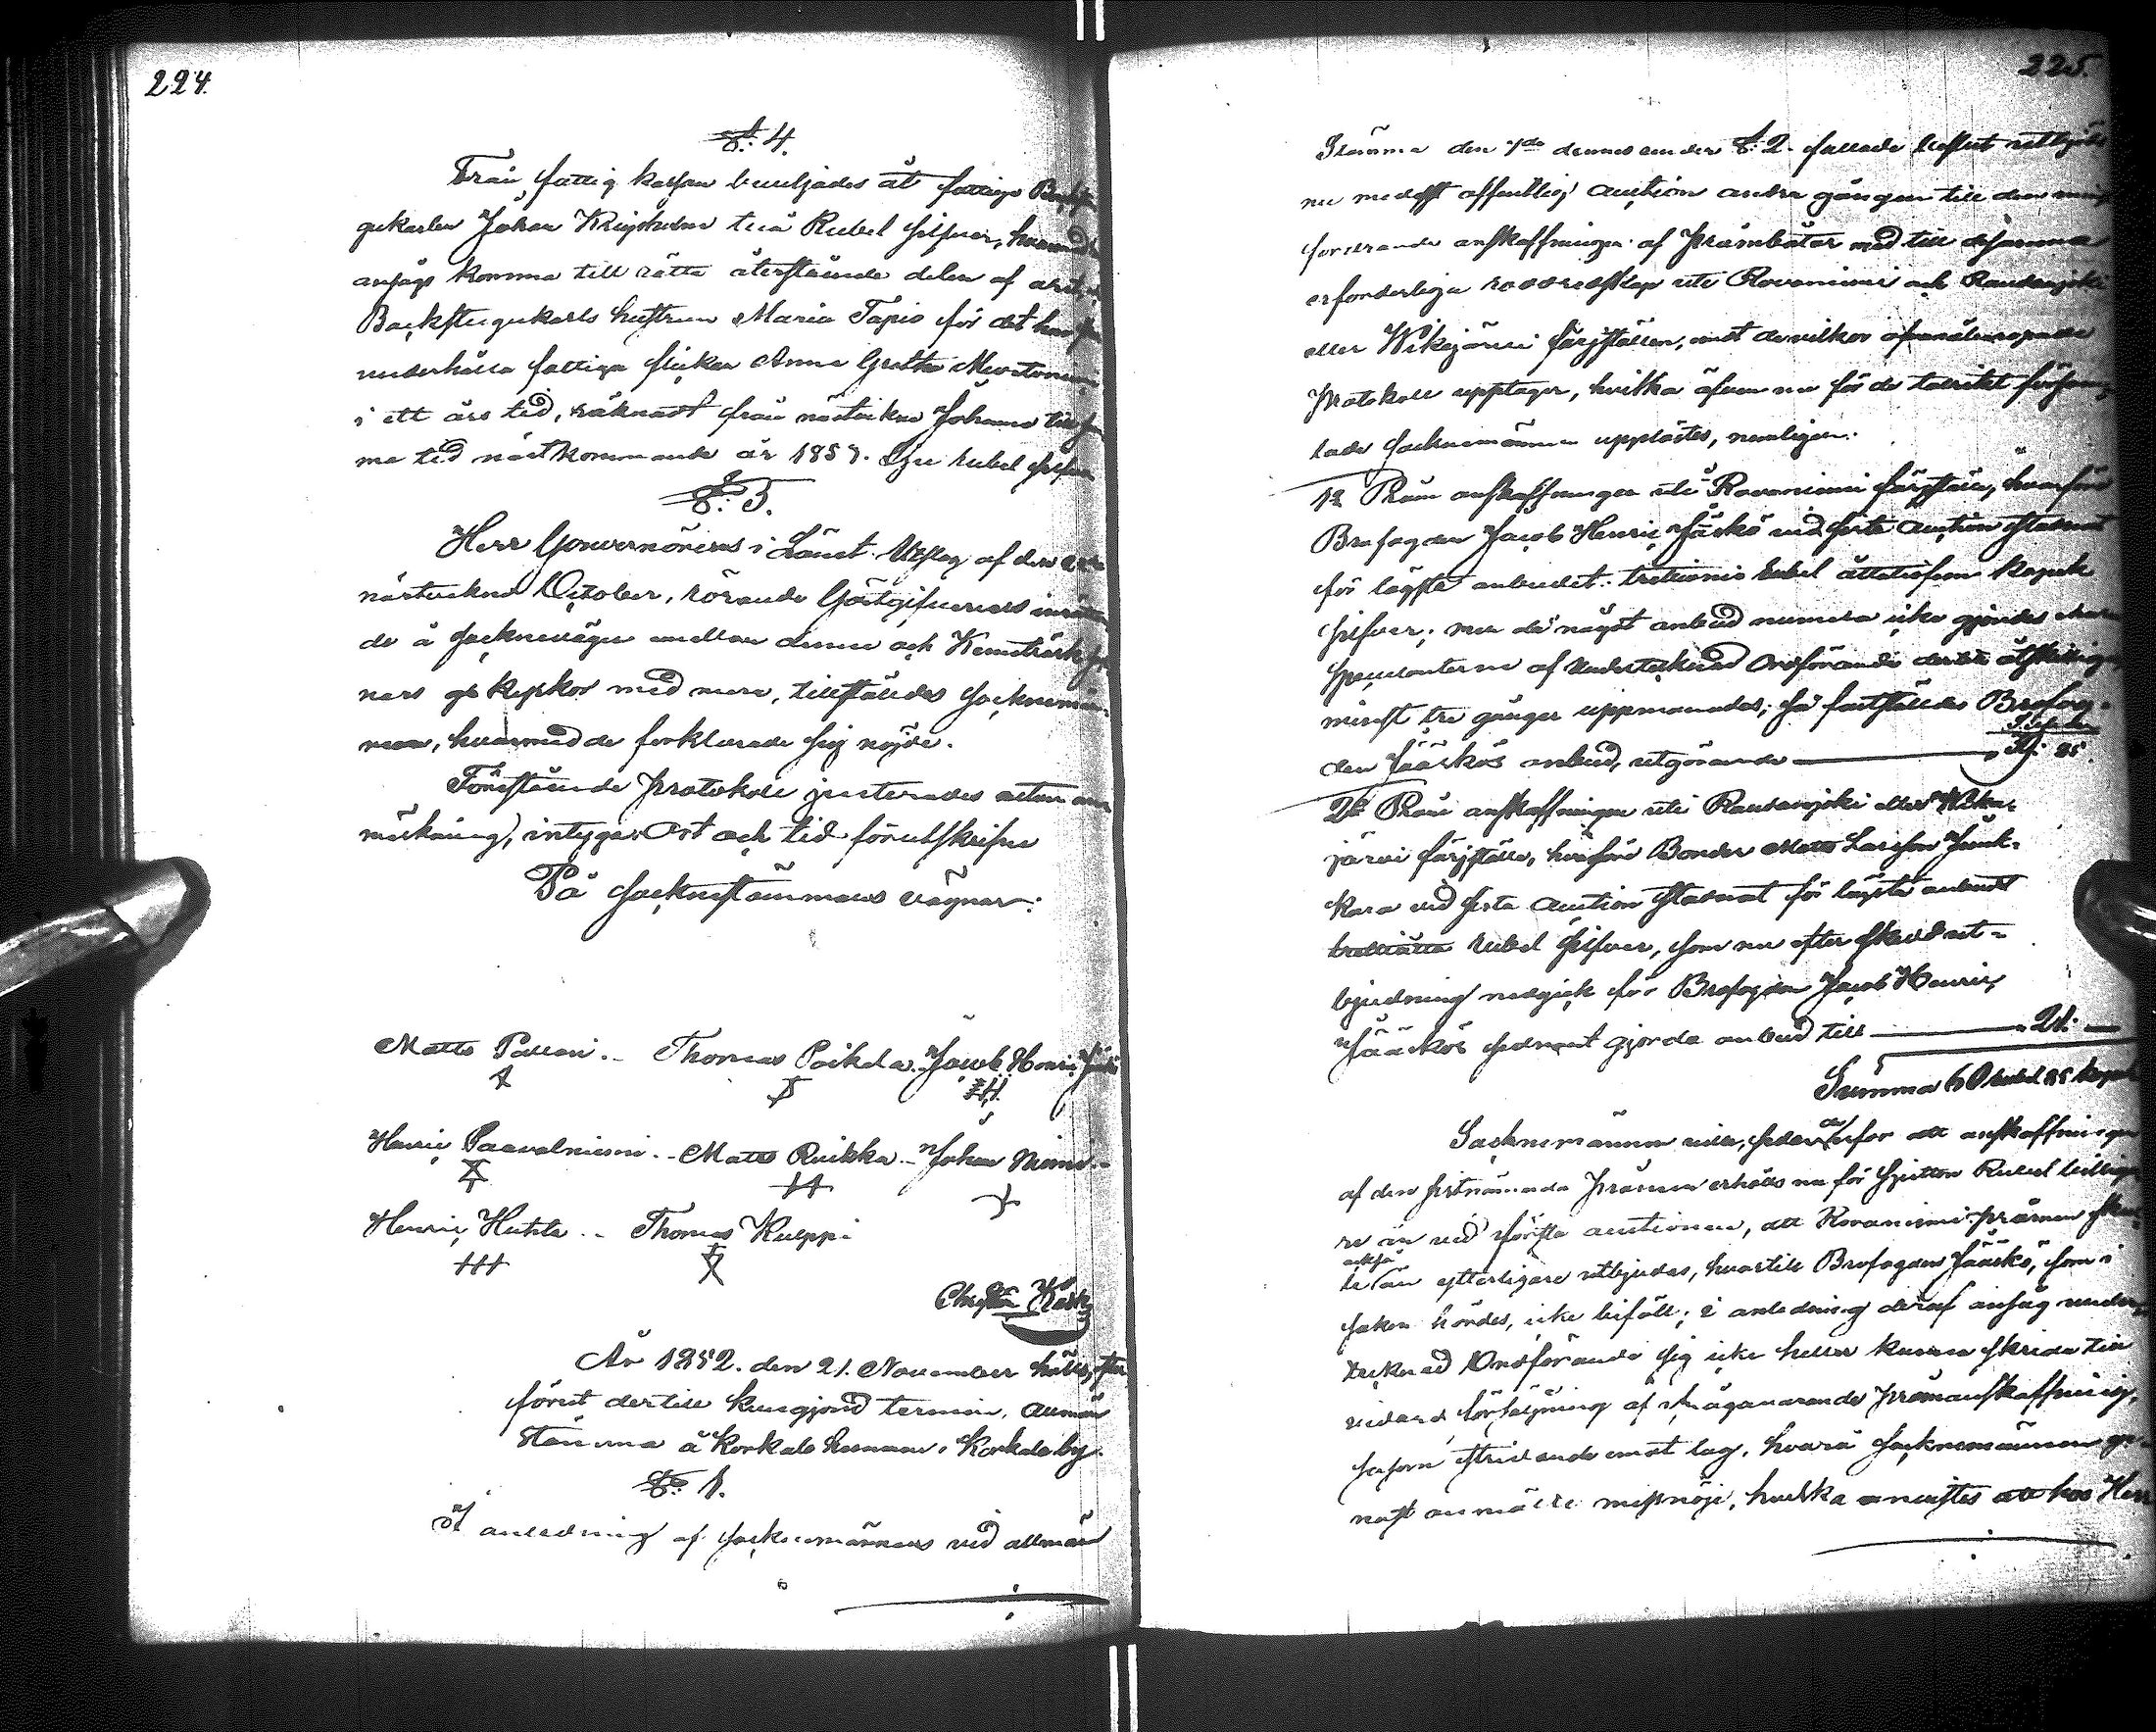 224.
§. 4.
Från fattig kassan beviljades åt fattige
gukarlen Johan Krigsholm två Rubel silfver,
ansågs komma till rätta återstående delen af
Backstugukarls hustrun Maria Tapio för det hon
underhålla fattiga flickan Anna Greta
i ett års tid, räknadt från nästvikne Johanni till
ma tid nästkommande år 1853. Sju rubel silfver
§. 5.
Herr Gouverneurens i Länet Utslag af den
nästvikne October, rörande Gästgifveriers inrättan
de å sockneväger emellan denne och Kemiträsk
nars med mera, tillställdes Socknemän
nen, hvarmed de förklarade sig nöjde.
Förestående protokoll justerades utan an
märkning, intygar Ort och tid förutskrifne
På Socknestämmans vägnar:
Matts Pallari. Thomas Poikela. Jacob Henric
Henric Paavalniemi. Matts Ruikka. Johan Niemi.
Henric Huhta. Thomas Kulppi
År 1852. den 21. November hölls, efter
förut dertill kungjord termin, allmän
Stämma å Korkalo hemman i Korkalo by.
§. 1.
I anledning af Socknemännens vid allmän
225.
Stämma den 7de dennes under §. 2. fallade beslut utbjöds
nu medelst offentlig auction andra gången till den minst
fordrande anskaffningen af Pråmbåtar med till desamma
erforderliga roddredskap uti Rovaniemi och Raudanjoki
eller Wikajärvi färjställen, mot de vilkor ofvanåberopade
Protokoll upptager, hvilka äfven nu för de talrikt försam
lade Socknemännen upplästes, nemligen:
1o Pråm anskaffningen uti Rovaniemi färjställe, hvarföre
Brofogden Jacob Henric Jääskö vid förta auction stannat
för lägsta anbudet: trettionio rubel åttatiofem kopek
silfver; men då något anbud numera icke gjordes
spekulanterne af Undertecknad Ordförande dertill åtskilliga
minst tre gånger uppmanades; så fastställdes Brofog-
den Jääskös anbud, utgörande 39. 85.
2o Pråm anskaffningen uti Raudanjoki eller Wika-
järvi färjställe, hvarföre Bonden Matts Larsson Junk-
kara vid förta auction stannat för lägsta anbudet
rubel silfver, som nu efter skedd ut-
bjudning nedgick för Brofogden Jacob Henric
Jääskös sednast gjorda anbud till 21.
Summa 60 rubel 85 kopek
Socknemännen ville, sedan derfor att anskaffningen
af den förstnämnda Pråmen erhölls nu för Rubel billiga
re än vid första auctionen, att Rovaniemi pråmen skul
le än ytterligare utbjudas, hvartill Brofogden Jääskö, som i
saken hördes, icke biföll; i anledning deraf ansåg under
tecknad Ordförande sig icke heller kunna skrida till
vidare försäljning af ifrågavarande pråmanskaffning,
såsom stridande emot lag, hvarå Socknemännen
nast anmälte missnöje, hvilka anvistes att hos Herr